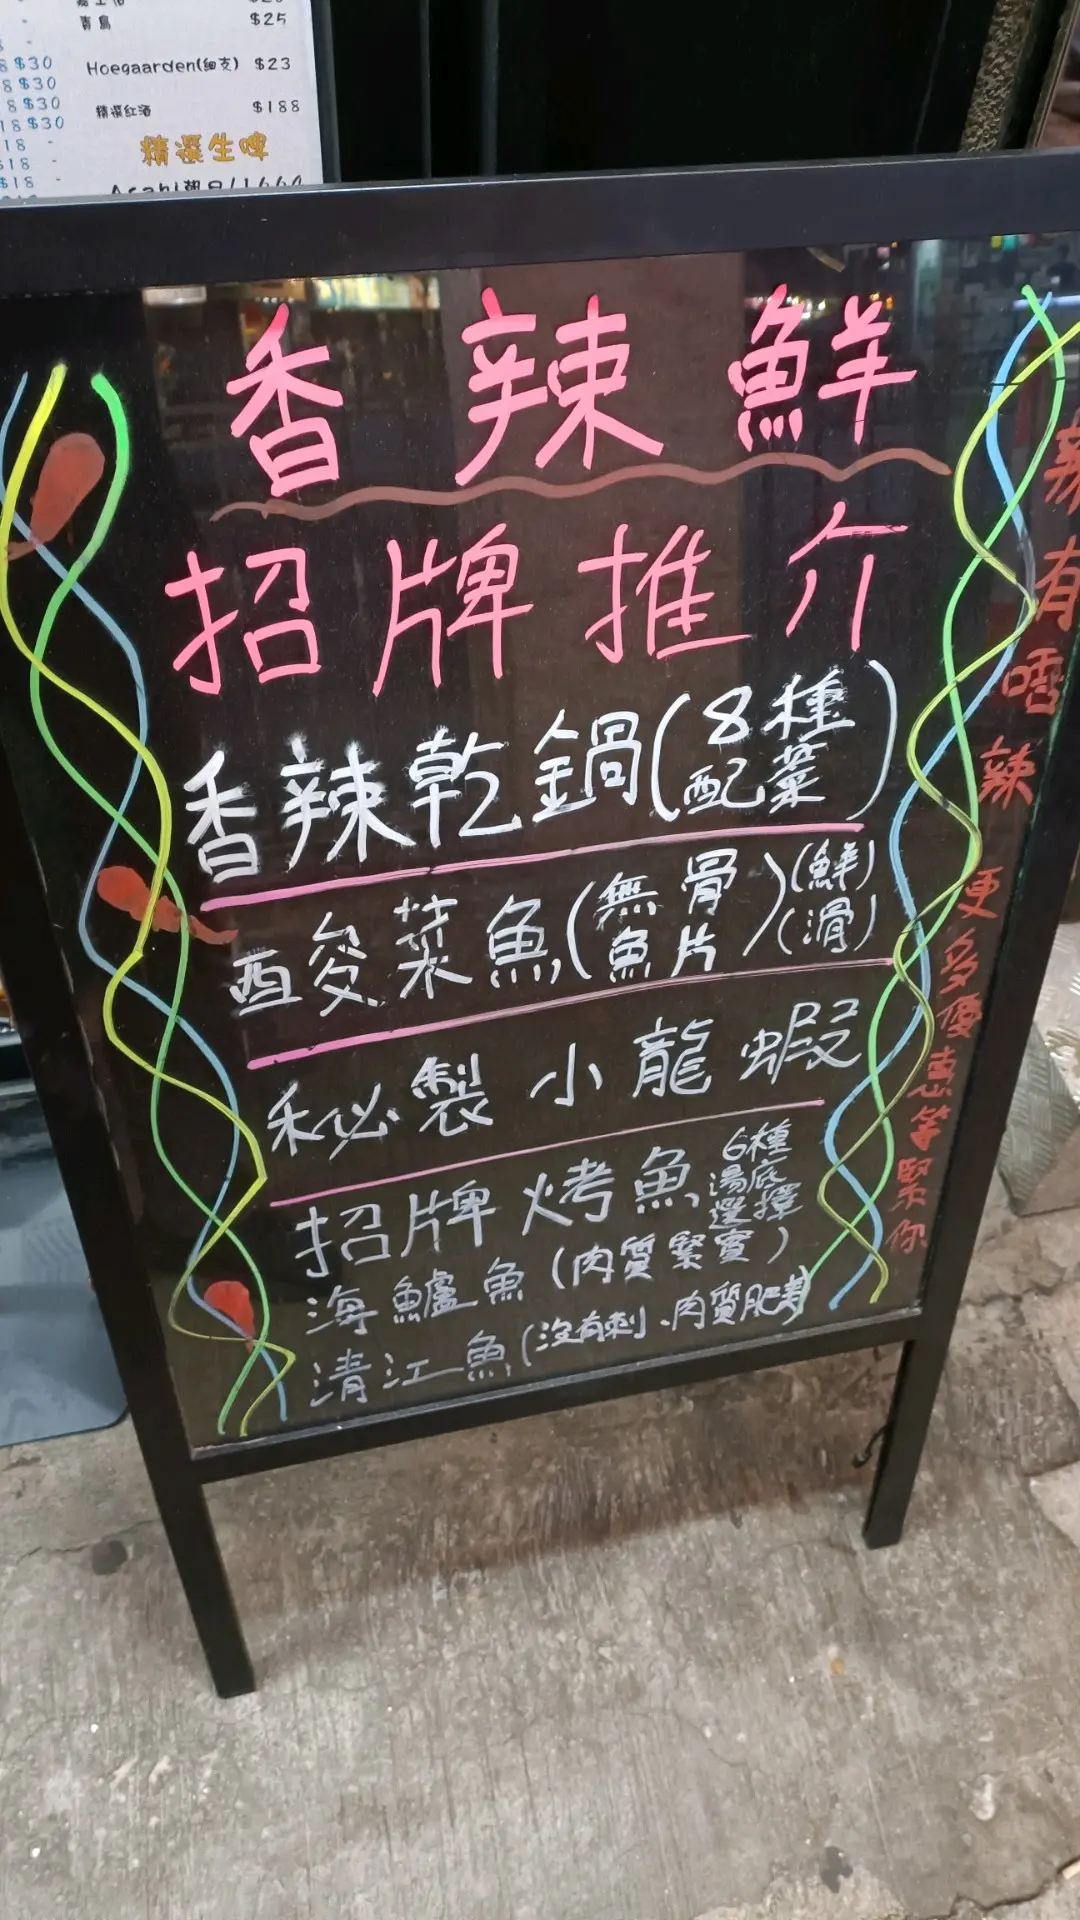 青島 $25
8 $30
Hoegaarden(細支) $23
8 $30
8 $30
精選紅酒 $188
18 $30
18 -
精選生啤
$18 -
$18 -
香辣鮮
招牌推介
香辣乾鍋(8種配菜)
酸菜魚(無骨魚片)(鮮)(滑)
秘製小龍蝦
招牌烤魚 6種湯底選擇
海鱸魚(肉質緊實)
清江魚(沒有刺、肉質肥美)
辣有唔辣
更多優惠等緊你